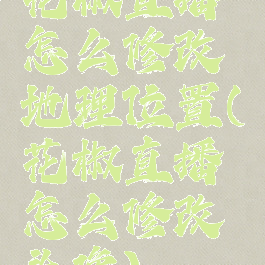 花椒直播
怎么修改
地理位置(
花椒直播
怎么修改